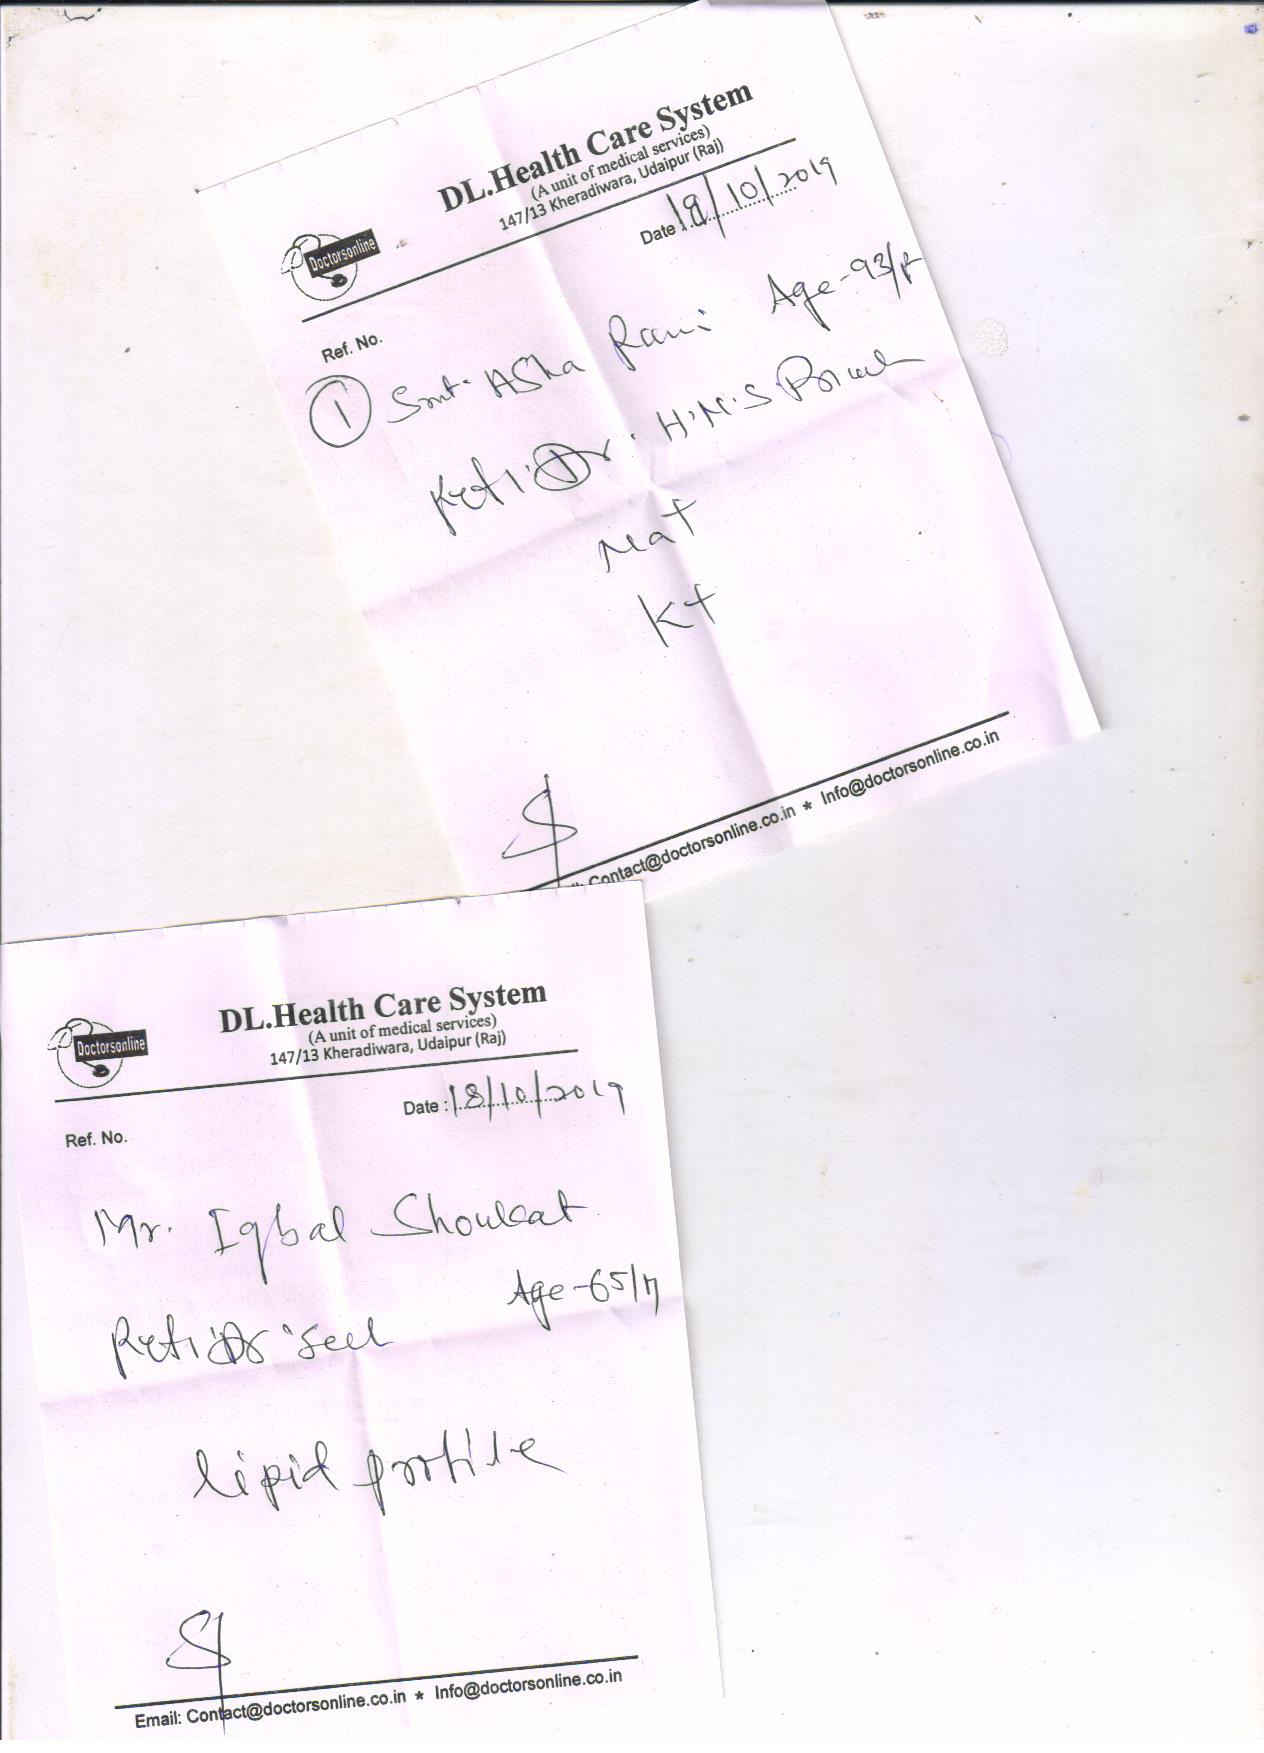 DL.Health Care System
(A unit of medical services)
147/13 Kheradiwara, Udaipur (Raj)
Doctorsonline
Date : 19/10/2019
Ref. No.
① Smt. Asha Rani Age-93/F
Ref: Dr. H.M.S.
Na+
K+
Contact@doctorsonline.co.in * Info@doctorsonline.co.in
DL.Health Care System
(A unit of medical services)
147/13 Kheradiwara, Udaipur (Raj)
Doctorsonline
Date : 18/10/2019
Ref. No.
Mr. Iqbal Shoukat
Age-65/M
Ref: Dr. Self
lipid profile
Email: Contact@doctorsonline.co.in * Info@doctorsonline.co.in